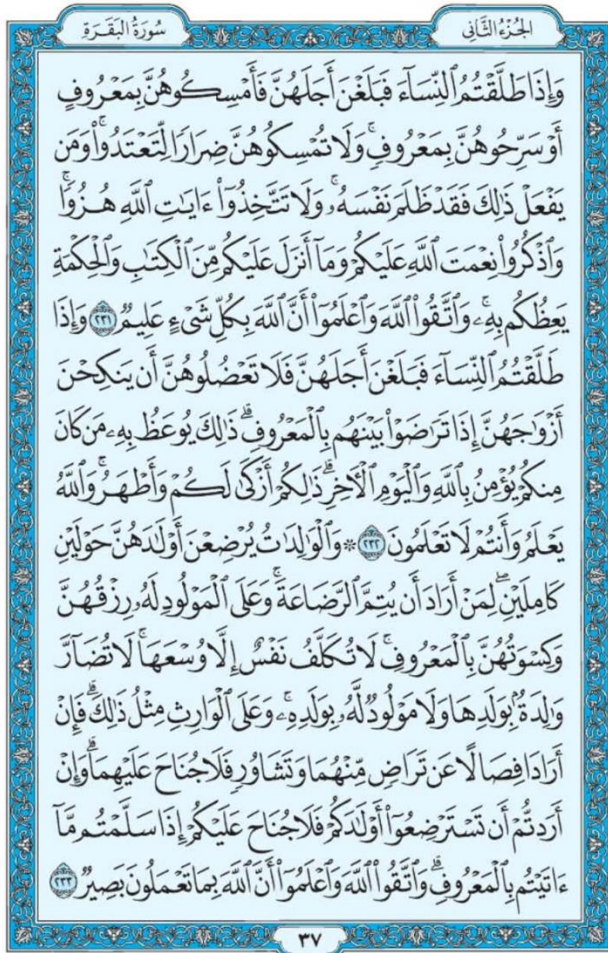 الجُزْءُ الثَّانِي
سُورَةُ البَقَرَةِ
وَإِذَا طَلَّقْتُمُ ٱلنِّسَآءَ فَبَلَغْنَ أَجَلَهُنَّ فَأَمْسِكُوهُنَّ بِمَعْرُوفٍ
أَوْ سَرِّحُوهُنَّ بِمَعْرُوفٍۚ وَلَا تُمْسِكُوهُنَّ ضِرَارًا لِّتَعْتَدُوا۟ۚ وَمَن
يَفْعَلْ ذَٰلِكَ فَقَدْ ظَلَمَ نَفْسَهُۥۚ وَلَا تَتَّخِذُوٓا۟ ءَايَٰتِ ٱللَّهِ هُزُوًاۚ
وَٱذْكُرُوا۟ نِعْمَتَ ٱللَّهِ عَلَيْكُمْ وَمَآ أَنزَلَ عَلَيْكُم مِّنَ ٱلْكِتَٰبِ وَٱلْحِكْمَةِ
يَعِظُكُم بِهِۦۚ وَٱتَّقُوا۟ ٱللَّهَ وَٱعْلَمُوٓا۟ أَنَّ ٱللَّهَ بِكُلِّ شَىْءٍ عَلِيمٌ ٢٣١ وَإِذَا
طَلَّقْتُمُ ٱلنِّسَآءَ فَبَلَغْنَ أَجَلَهُنَّ فَلَا تَعْضُلُوهُنَّ أَن يَنكِحْنَ
أَزْوَٰجَهُنَّ إِذَا تَرَٰضَوْا۟ بَيْنَهُم بِٱلْمَعْرُوفِۗ ذَٰلِكَ يُوعَظُ بِهِۦ مَن كَانَ
مِنكُمْ يُؤْمِنُ بِٱللَّهِ وَٱلْيَوْمِ ٱلْءَاخِرِۗ ذَٰلِكُمْ أَزْكَىٰ لَكُمْ وَأَطْهَرُۚ وَٱللَّهُ
يَعْلَمُ وَأَنتُمْ لَا تَعْلَمُونَ ٢٣٢ ۞ وَٱلْوَٰلِدَٰتُ يُرْضِعْنَ أَوْلَٰدَهُنَّ حَوْلَيْنِ
كَامِلَيْنِۖ لِمَنْ أَرَادَ أَن يُتِمَّ ٱلرَّضَاعَةَۚ وَعَلَى ٱلْمَوْلُودِ لَهُۥ رِزْقُهُنَّ
وَكِسْوَتُهُنَّ بِٱلْمَعْرُوفِۚ لَا تُكَلَّفُ نَفْسٌ إِلَّا وُسْعَهَاۚ لَا تُضَآرَّ
وَٰلِدَةٌۢ بِوَلَدِهَا وَلَا مَوْلُودٌ لَّهُۥ بِوَلَدِهِۦۚ وَعَلَى ٱلْوَارِثِ مِثْلُ ذَٰلِكَۗ فَإِنْ
أَرَادَا فِصَالًا عَن تَرَاضٍ مِّنْهُمَا وَتَشَاوُرٍ فَلَا جُنَاحَ عَلَيْهِمَاۗ وَإِنْ
أَرَدتُّمْ أَن تَسْتَرْضِعُوٓا۟ أَوْلَٰدَكُمْ فَلَا جُنَاحَ عَلَيْكُمْ إِذَا سَلَّمْتُم مَّآ
ءَاتَيْتُم بِٱلْمَعْرُوفِۗ وَٱتَّقُوا۟ ٱللَّهَ وَٱعْلَمُوٓا۟ أَنَّ ٱللَّهَ بِمَا تَعْمَلُونَ بَصِيرٌ ٢٣٣
٣٧